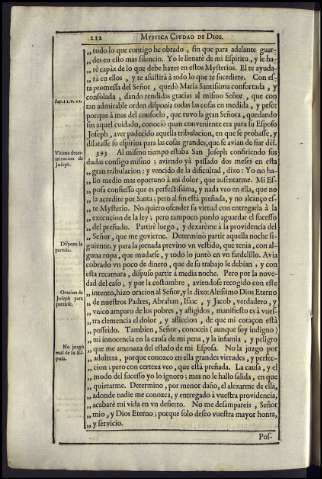 222 MYSTICA CIUDAD DE DIOS.
„ todo lo que contigo he obrado, sin que para adelante guar-
„ des en esto mas silencio. Yo le llenaré de mi Espiritu, y le ha-
„ ré capáz de lo que debe hazer en estos Mysterios. El te ayuda-
„ rá en ellos, y te assistirá à todo lo que te sucediere. Con es-
ta promessa del Señor, quedò Maria Santissima confortada, y
consolada, dando rendidas gracias al mismo Señor, que con
tan admirable orden disponia todas las cosas en medida, y peso:
porque à mas del consuelo, que tuvo la gran Señora, quedando
sin aquel cuidado, conociò quan conveniente era para su Esposo
Joseph, aver padecido aquella tribulacion, en que se probasse, y
dilatasse su espiritu para las cosas grandes, que se avian de fiar dèl.
Sap. 11. v. 21.
393 Al mismo tiempo estaba San Joseph confiriendo sus
dudas consigo mismo; aviendo yà passado dos meses en esta
„ gran tribulacion; y vencido de la dificultad, dixo: Yo no ha-
„ llo medio mas oportuno à mi dolor, que ausentarme. Mi Es-
„ posa confiesso que es perfectissima, y nada veo en ella, que no
„ la acredite por Santa; pero al fin està preñada, y no alcanço es-
„ te Mysterio. No quiero ofender su virtud con entregarla à la
„ execucion de la ley; pero tampoco puedo aguardar el sucesso
„ del preñado. Partirè luego, y dexarème à la providencia del
„ Señor, que me govierne. Determinò partir aquella noche si-
guiente, y para la jornada previno un vestido, que tenia, con al-
guna ropa, que mudarse, y todo lo juntò en un fardelillo. Avia
cobrado un poco de dinero, que de su trabajo le debian, y con
esta recamara, dispuso partir à media noche. Pero por la nove-
dad del caso, y por la costumbre, aviendose recogido con este
„ intento, hizo oracion al Señor, y le dixo: Altissimo Dios Eterno
„ de nuestros Padres, Abrahan, Isaac, y Jacob, verdadero, y
„ unico amparo de los pobres, y afligidos, manifiesto es à vues-
„ tra clemencia el dolor, y afliccion, de que mi coraçon està
„ posseido. Tambien, Señor, conoceis (aunque soy indigno)
„ mi inocencia en la causa de mi pena, y la infamia, y peligro
„ que me amenaza del estado de mi Esposa. No la juzgo por
„ adultera, porque conozco en ella grandes virtudes, y perfec-
„ cion; pero con certeza veo, que està preñada. La causa, y el
„ modo del sucesso yo lo ignoro; mas no le hallo salida, en que
„ quietarme. Determino, por menor daño, el alexarme de ella,
„ adonde nadie me conozca, y entregado à vuestra providencia,
„ acabarè mi vida en un desierto. No me desampareis, Señor
„ mio, y Dios Eterno; porque solo deseo vuestra mayor honra,
„ y servicio.
Ultima deter-
minacion de
Joseph.
Dispone la
partida.
Oracion de
Joseph para
partirse.
No juzgò
mal de su Es-
posa.
Pos-